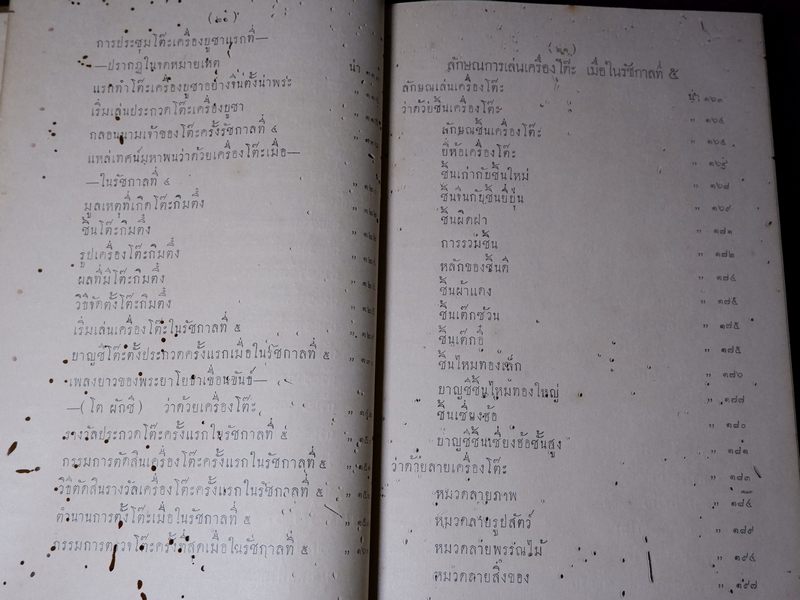 (๒๐)
การประชุมโต๊ะเครื่องบูชาแรกที่—
—ปรากฏในจดหมายเหตุ น่า
แรกทำโต๊ะเครื่องบูชาอย่างจีนตั้งน่าพระ
เริ่มเล่นประกวดโต๊ะเครื่องบูชา
กลอนนามเจ้าของโต๊ะครั้งรัชกาลที่ ๔
แหล่เทศน์มหาพนว่าด้วยเครื่องโต๊ะเมื่อ—
—ในรัชกาลที่ ๔
มูลเหตุที่เกิดโต๊ะกิมตึ๋ง
ชิ้นโต๊ะกิมตึ๋ง
รูปเครื่องโต๊ะกิมตึ๋ง
ผลที่มีโต๊ะกิมตึ๋ง
วิธีจัดตั้งโต๊ะกิมตึ๋ง
เริ่มเล่นเครื่องโต๊ะในรัชกาลที่ ๕
บาญชีโต๊ะตั้งประกวดครั้งแรกเมื่อในรัชกาลที่ ๕
เพลงยาวของพระยาโยธาเขื่อนขันธ์—
—(โต ผักชี) ว่าด้วยเครื่องโต๊ะ
รางวัลประกวดโต๊ะครั้งแรกในรัชกาลที่ ๕
กรรมการตัดสินเครื่องโต๊ะครั้งแรกในรัชกาลที่ ๕
วิธีตัดสินรางวัลเครื่องโต๊ะครั้งแรกในรัชกาลที่ ๕
ตำนานการตั้งโต๊ะเมื่อในรัชกาลที่ ๕
กรรมการตรวจโต๊ะครั้งที่สุดเมื่อในรัชกาลที่ ๕
(๒๑)
ลักษณการเล่นเครื่องโต๊ะ เมื่อในรัชกาลที่ ๕
ลักษณเล่นเครื่องโต๊ะ น่า ๑๖๓
ว่าด้วยชิ้นเครื่องโต๊ะ " ๑๖๔
ลักษณชิ้นเครื่องโต๊ะ " ๑๖๕
ยี่ห้อเครื่องโต๊ะ
ชิ้นเก่ากับชิ้นใหม่ " ๑๖๘
ชิ้นจีนกับชิ้นยี่ปุ่น " ๑๖๙
ชิ้นผิดฝา " ๑๗๑
การรวมชิ้น " ๑๗๒
หลักของชิ้นดี " ๑๗๔
ชิ้นผ้าแดง " ๑๗๕
ชิ้นเต๊กชวน " ๑๗๕
ชิ้นเต๊กฮี " ๑๗๕
ชิ้นไหมทองเล็ก
บาญชีชิ้นไหมทองใหญ่ " ๑๗๗
ชิ้นเซี่ยงฮ้อ " ๑๘๐
บาญชีชิ้นเซี่ยงฮ้อชั้นสูง " ๑๘๑
ว่าด้วยลายเครื่องโต๊ะ " ๑๘๓
หมวดลายภาพ
หมวดลายรูปสัตว์ " ๑๘๙
หมวดลายพรรณไม้ " ๑๙๔
หมวดลายสิ่งของ " ๑๙๗